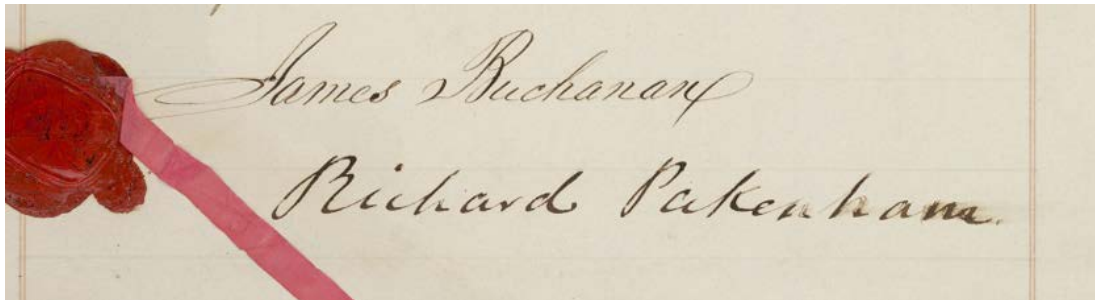 James Buchanan
Richard Pakenham.